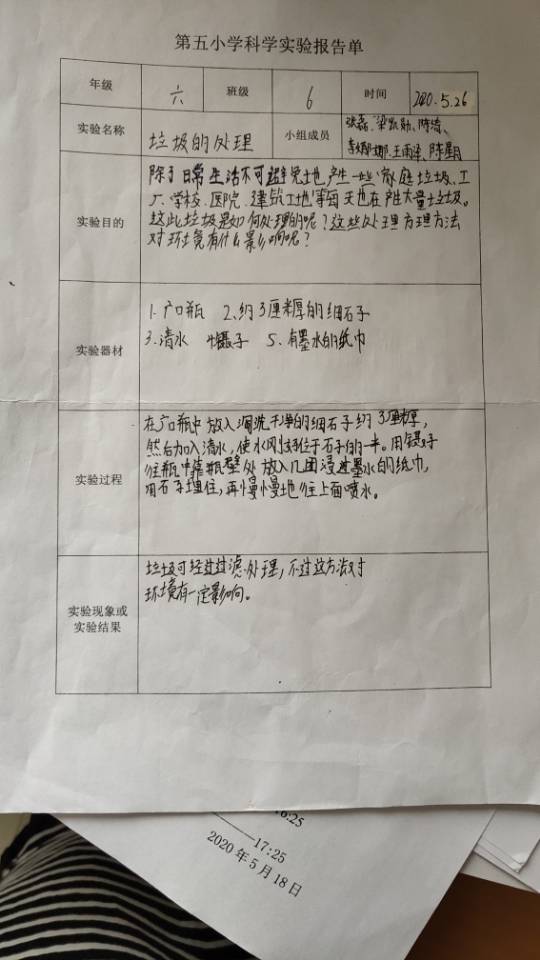 第五小学科学实验报告单
年级 六 班级 6 时间 2020.5.26
实验名称 垃圾的处理 小组成员 张磊、梁凯勋、陈涛、
李娜娜、王雨泽、陈星月
实验目的
除了日常生活不可避免地产生一些家庭垃圾、工
厂、学校、医院、建筑工地等每天也在产生大量垃圾。
这些垃圾是如何处理的呢?这些处理方理方法
对环境有什么影响呢?
实验器材
1.广口瓶 2.约3厘米厚的细石子
3.清水 4.镊子 5.有墨水的纸巾
实验过程
在广口瓶中放入清洗干净的细石子约3厘米厚,
然后加入清水,使水刚好位于石子的一半。用镊子
往瓶中靠瓶壁处放入几团浸过墨水的纸巾,
用石子埋住,再慢慢地往上面喷水。
实验现象或
实验结果
垃圾可经过过滤处理,不过这方法对
环境有一定影响。
16:25
17:25
2020年5月18日